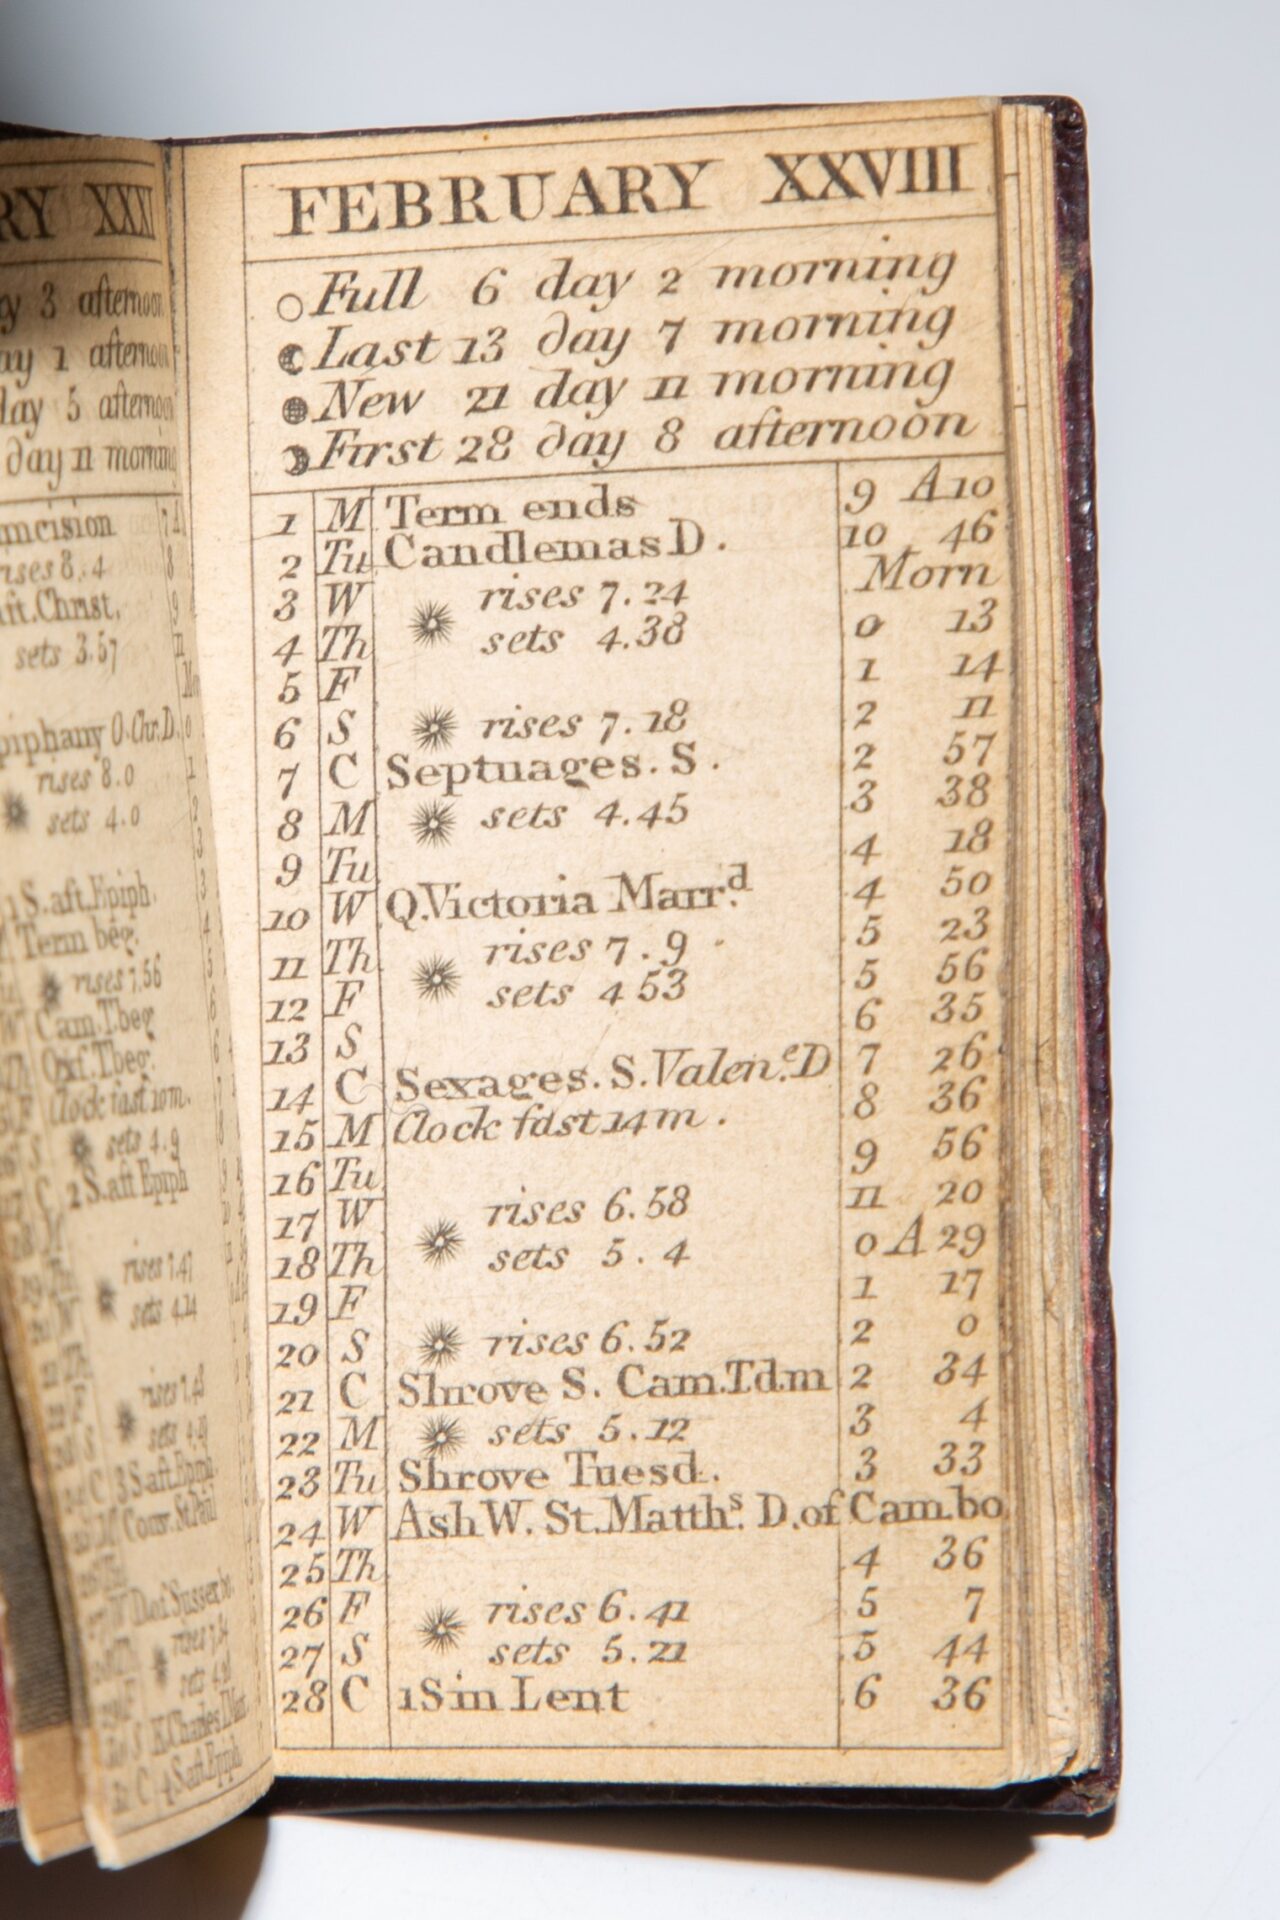 RY XXXI
y 3 afternoon
ay 1 afternoon
day 5 afternoon
day 11 morning
umcision
rises 8.4
aft. Christ.
sets 3.57
piphany O. Chr. D.
rises 8.0
sets 4.0
1 S. aft. Epiph.
Term beg.
rises 7.56
Cam. T. beg
Oxf. T. beg.
Clock fast 10 m.
sets 4.9
2 S. aft Epiph
rises 7.47
sets 4.14
rises 7.43
sets
3 S aft. Epiph
Conv. St. Paul
D. of Sussex bo.
rises
sets
K. Charles I. Mar.
C 4 S. aft. Epiph
FEBRUARY XXVIII
Full 6 day 2 morning
Last 13 day 7 morning
New 21 day 11 morning
First 28 day 8 afternoon
1 M Term ends 9 A 10
2 Tu Candlemas D. 10 46
3 W rises 7.24 Morn
4 Th sets 4.38 0 13
5 F 1 14
6 S rises 7.18 2 11
7 C Septuages. S. 2 57
8 M sets 4.45 3 38
9 Tu 4 18
10 W Q. Victoria Marr.d 4 50
11 Th rises 7.9 5 23
12 F sets 4 53 5 56
13 S 6 35
14 C Sexages. S. Valen.e D 7 26
15 M Clock fast 14 m. 8 36
16 Tu 9 56
17 W rises 6.58 11 20
18 Th sets 5.4 0 A 29
19 F 1 17
20 S rises 6.52 2 0
21 C Shrove S. Cam. T. d. m 2 34
22 M sets 5.12 3 4
23 Tu Shrove Tuesd. 3 33
24 W Ash W. St. Matth.s D. of Cam. bo
25 Th 4 36
26 F rises 6.41 5 7
27 S sets 5.21 5 44
28 C 1 S in Lent 6 36